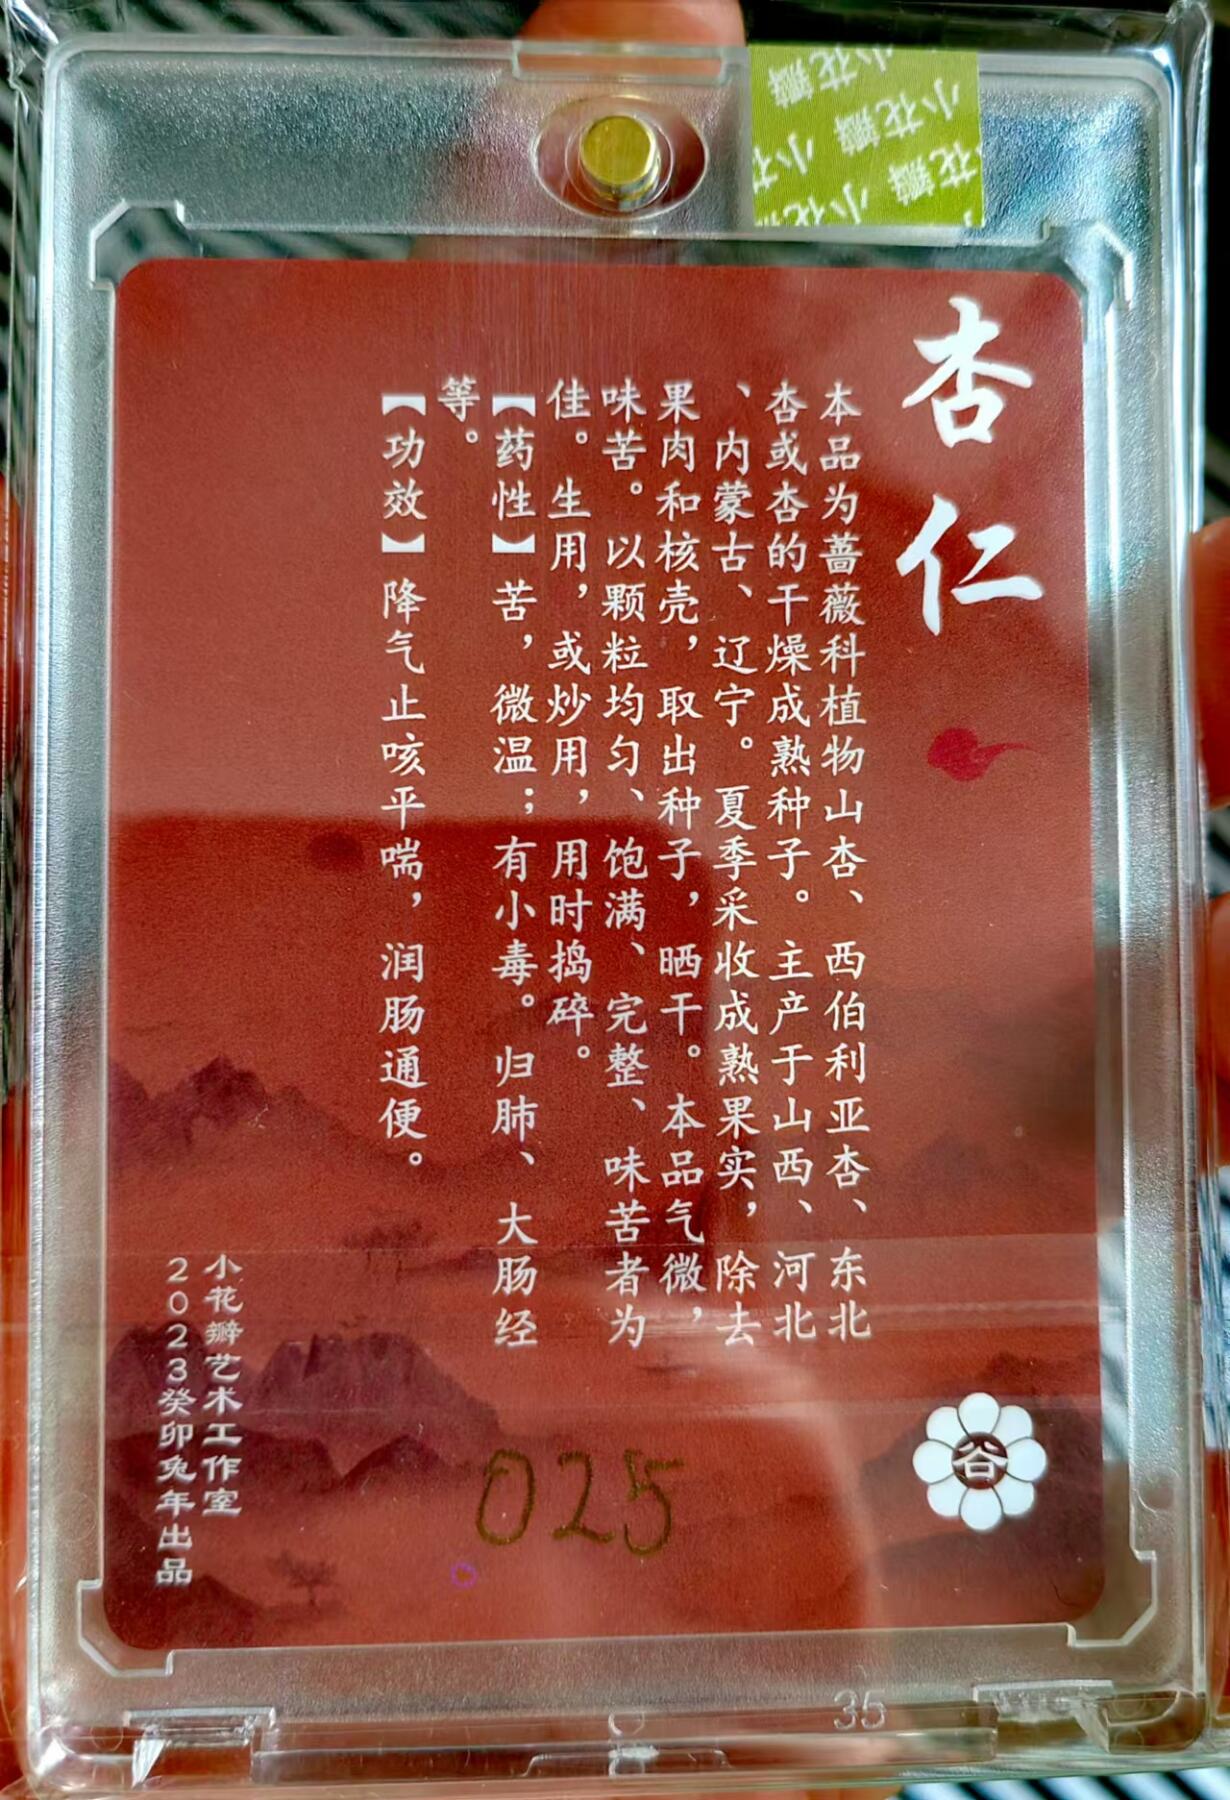 小花瓣
小花瓣
小花瓣
杏仁
本品为蔷薇科植物山杏、西伯利亚杏、东北
杏或杏的干燥成熟种子。主产于山西、河北
、内蒙古、辽宁。夏季采收成熟果实，除去
果肉和核壳，取出种子，晒干。本品气微，
味苦。以颗粒均匀、饱满、完整、味苦者为
佳。生用，或炒用，用时捣碎。
【药性】苦，微温；有小毒。归肺、大肠经
等。
【功效】降气止咳平喘，润肠通便。
小花瓣艺术工作室
2023癸卯兔年出品
025
谷
35